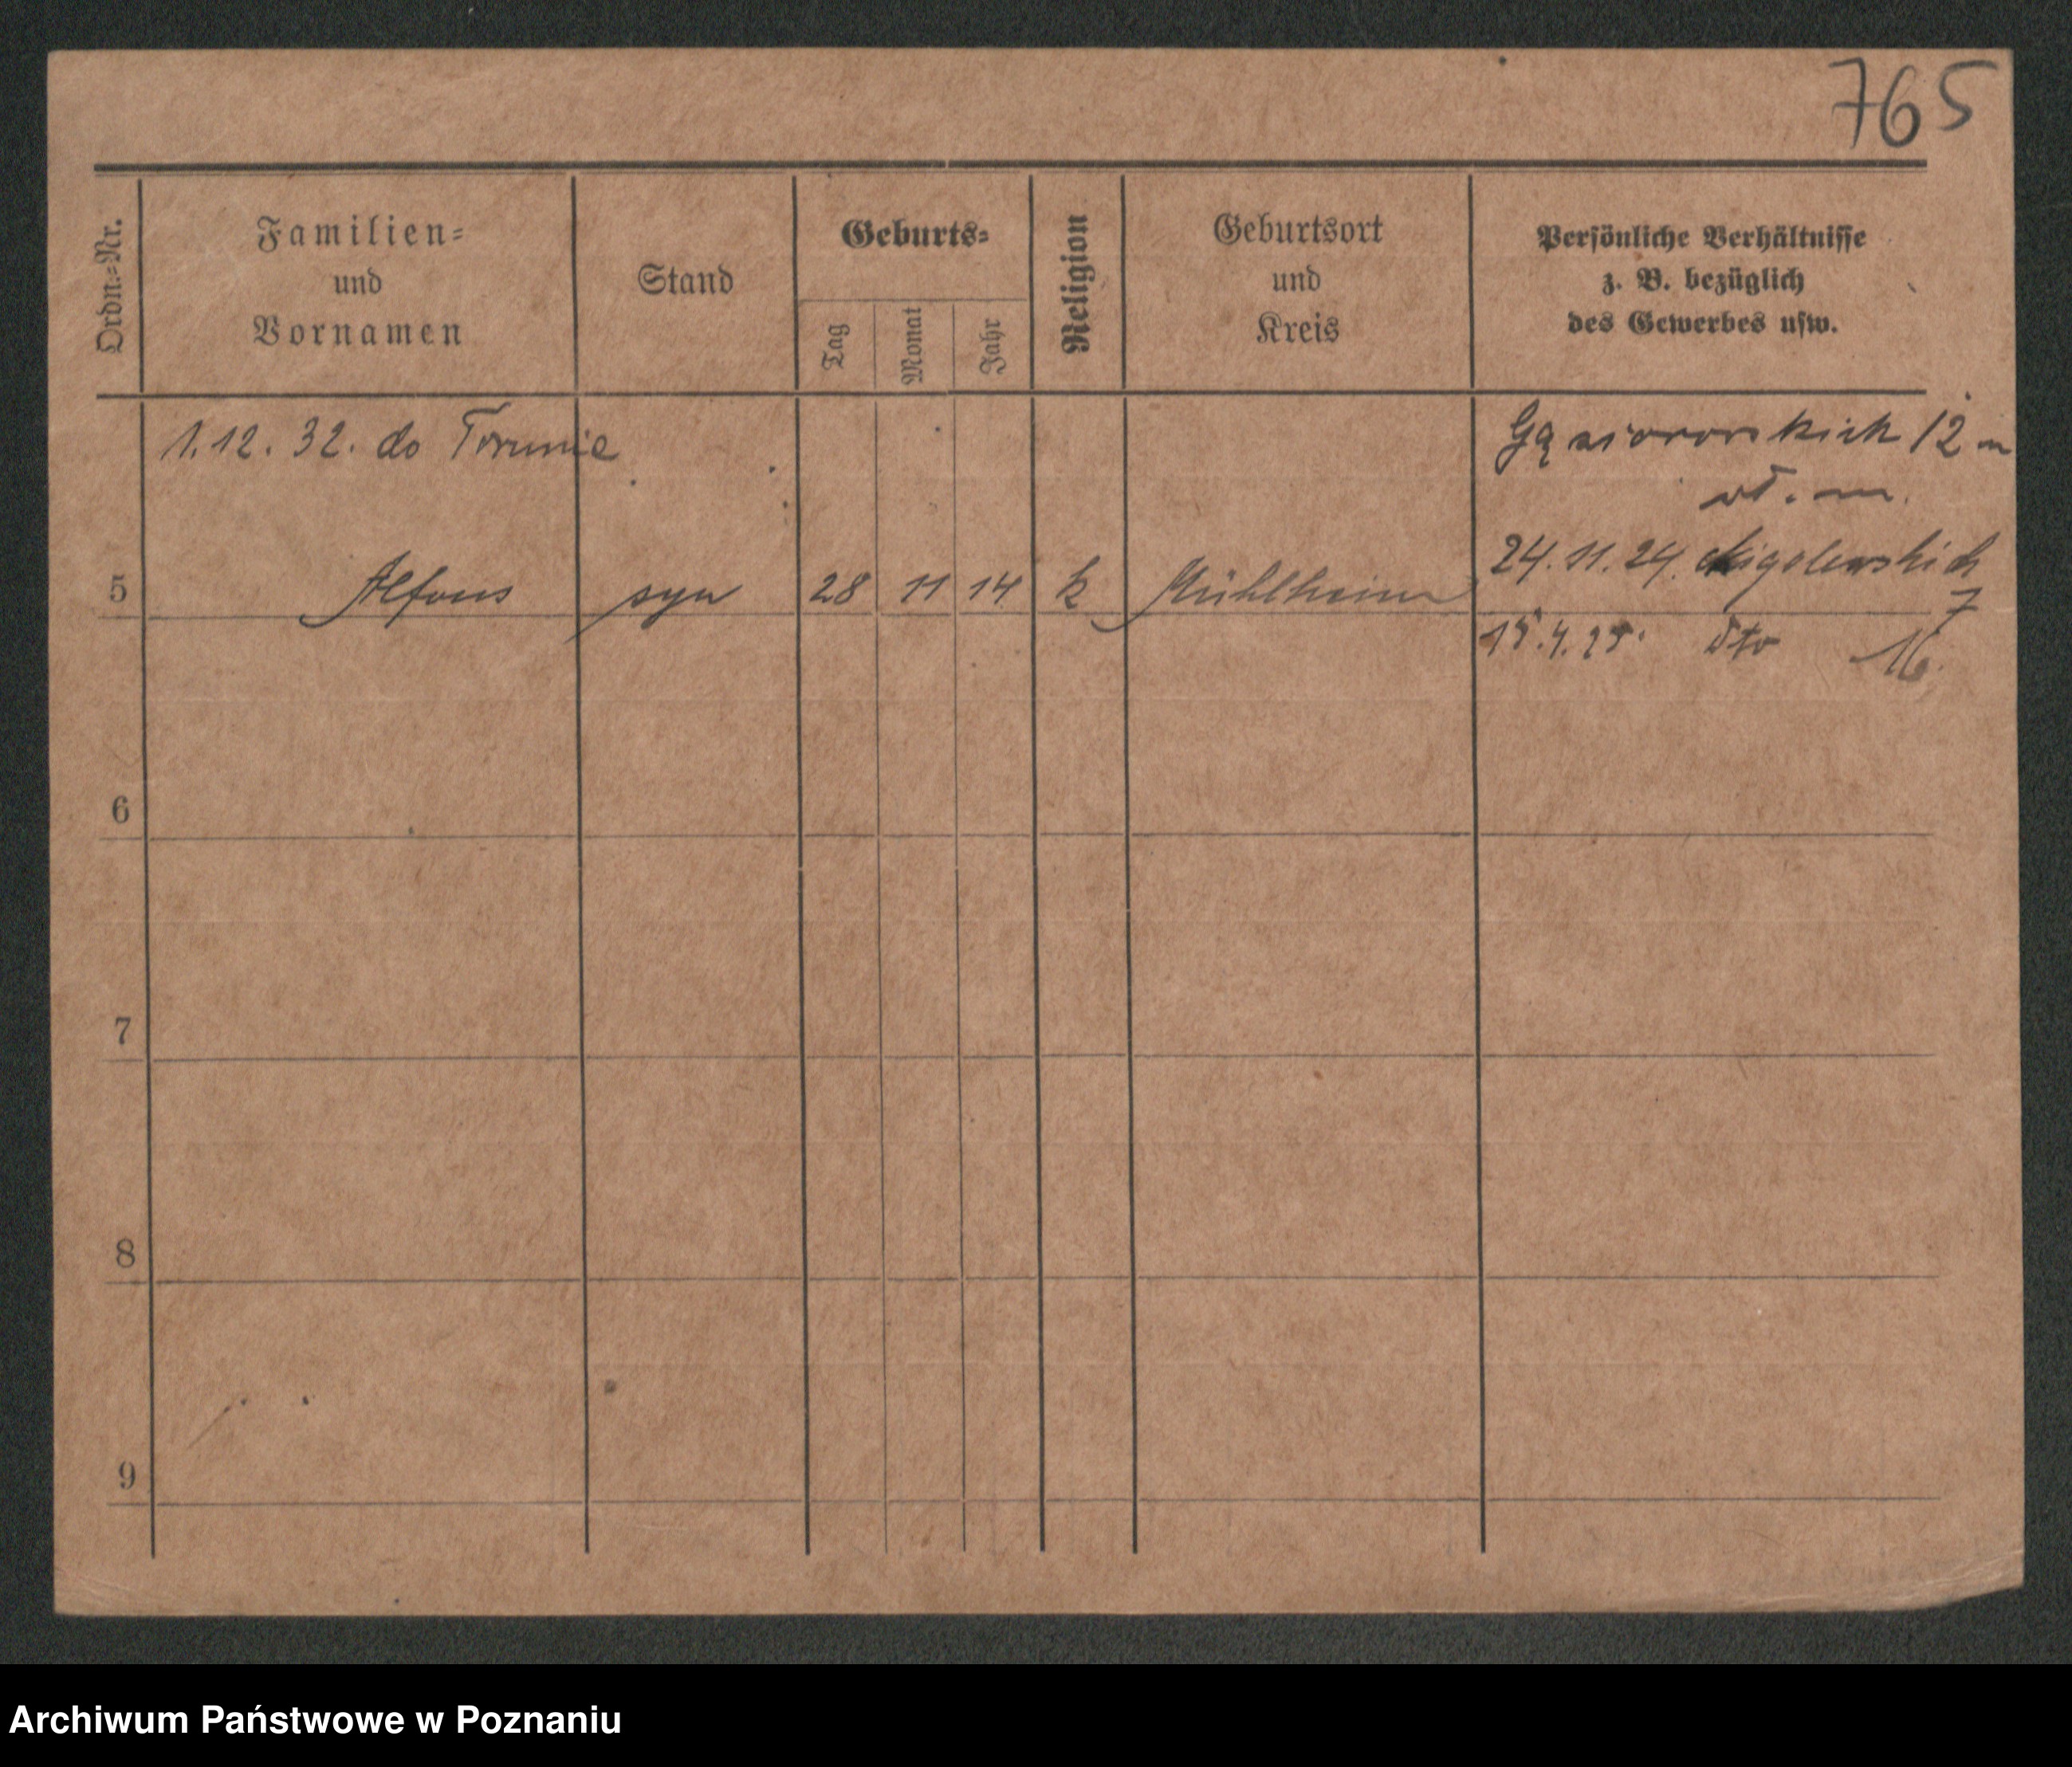 765
Ordn.=Nr.
Familien=
und
Vornamen
Stand
Geburts=
Tag
Monat
Jahr
Religion
Geburtsort
und
Kreis
Persönliche Verhältnisse
z. B. bezüglich
des Gewerbes usw.
1.12.32. do Torunia
Gąsiorowskich 12 m
24.11.24.
5 Alfons syn 28 11 14 k Mühlheim
7
15.4.25. dto 16.
6
7
8
9
Archiwum Państwowe w Poznaniu